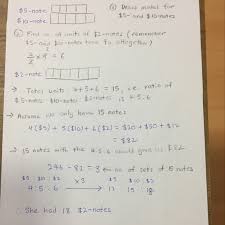 $5-note ① Draw model for
$10-note $5- and $10-notes
② Find no of units of $2-notes (remember
$5-and $10-notes have to altogether)
x 9 = 6
$2-note
→ Total units 4+5+6 = 15, i.e. ratio of
$5-notes : $10-notes : $2-notes is 4:5:6
→ Assume we only have 15 notes
4($5) + 5($10) + 6($2) = $20 + $50 + $12
= $82
→ 15 notes with the 4:5:6 would give us $82
246 ÷ 82 = 3 ← no of sets of 15 notes
$5 : $10 : $2 x3 $5 $10 $2
4 : 5 : 6 → 12 15 18
∴ She had 18 $2-notes